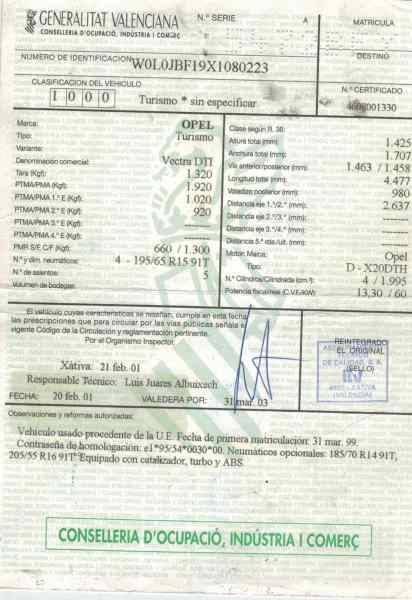 GENERALITAT VALENCIANA
CONSELLERIA D'OCUPACIÓ, INDÚSTRIA I COMERÇ
N.º SERIE
A
MATRICULA
NUMERO DE IDENTIFICACION W0L0JBF19X1080223
DESTINO
CLASIFICACION DEL VEHICULO
1 0 0 0 Turismo * sin especificar
N.º CERTIFICADO
001330
Marca: OPEL
Tipo: Turismo
Variante:
Denominación comercial: Vectra DTI
Tara (Kgf): 1.320
PTMA/PMA (Kgf): 1.920
PTMA/PMA 1.º E (Kgf): 1.020
PTMA/PMA 2.º E (Kgf): 920
PTMA/PMA 3.º E (Kgf):
PTMA/PMA 4.º E (Kgf):
PMR S/E C/F (Kgf): 660 / 1.300
N.º y dim. neumáticos: 4 - 195/65 R15 91T
N.º de asientos: 5
Volumen de bodegas:
Clase según R. 36:
Altura total (mm): 1.425
Anchura total (mm): 1.707
Vía anterior/posterior (mm): 1.463 / 1.458
Longitud total (mm): 4.477
Voladizo posterior (mm): 980
Distancia eje 1.º/2.º (mm): 2.637
Distancia eje 2.º/3.º (mm):
Distancia eje 3.º/4.º (mm):
Distancia 5.ª rda./últ. (mm):
Motor: Marca: Opel
Tipo: D - X20DTH
N.º Cilindros/Cilindrada (cm.³): 4 / 1.995
Potencia fiscal/real (C.V.F/KW): 13,30 / 60
El vehículo cuyas características se reseñan, cumple en esta fecha
las prescripciones que para circular por las vías públicas señala el
vigente Código de la Circulación y reglamentación pertinente.
Por el Organismo Inspector.
REINTEGRADO
EL ORIGINAL
(SELLO)
DE CALIDAD, S. A.
ITV
(VALENCIA)
Xàtiva: 21 feb. 01
Responsable Técnico: Luis Juares Albuixech
FECHA: 20 feb. 01 VALEDERA POR: 31 mar. 03
Observaciones y reformas autorizadas:
Vehículo usado procedente de la U.E. Fecha de primera matriculación: 31 mar. 99.
Contraseña de homologación: e1*95/54*0030*00. Neumáticos opcionales: 185/70 R14 91T,
205/55 R16 91T. Equipado con catalizador, turbo y ABS.
CONSELLERIA D'OCUPACIÓ, INDÚSTRIA I COMERÇ